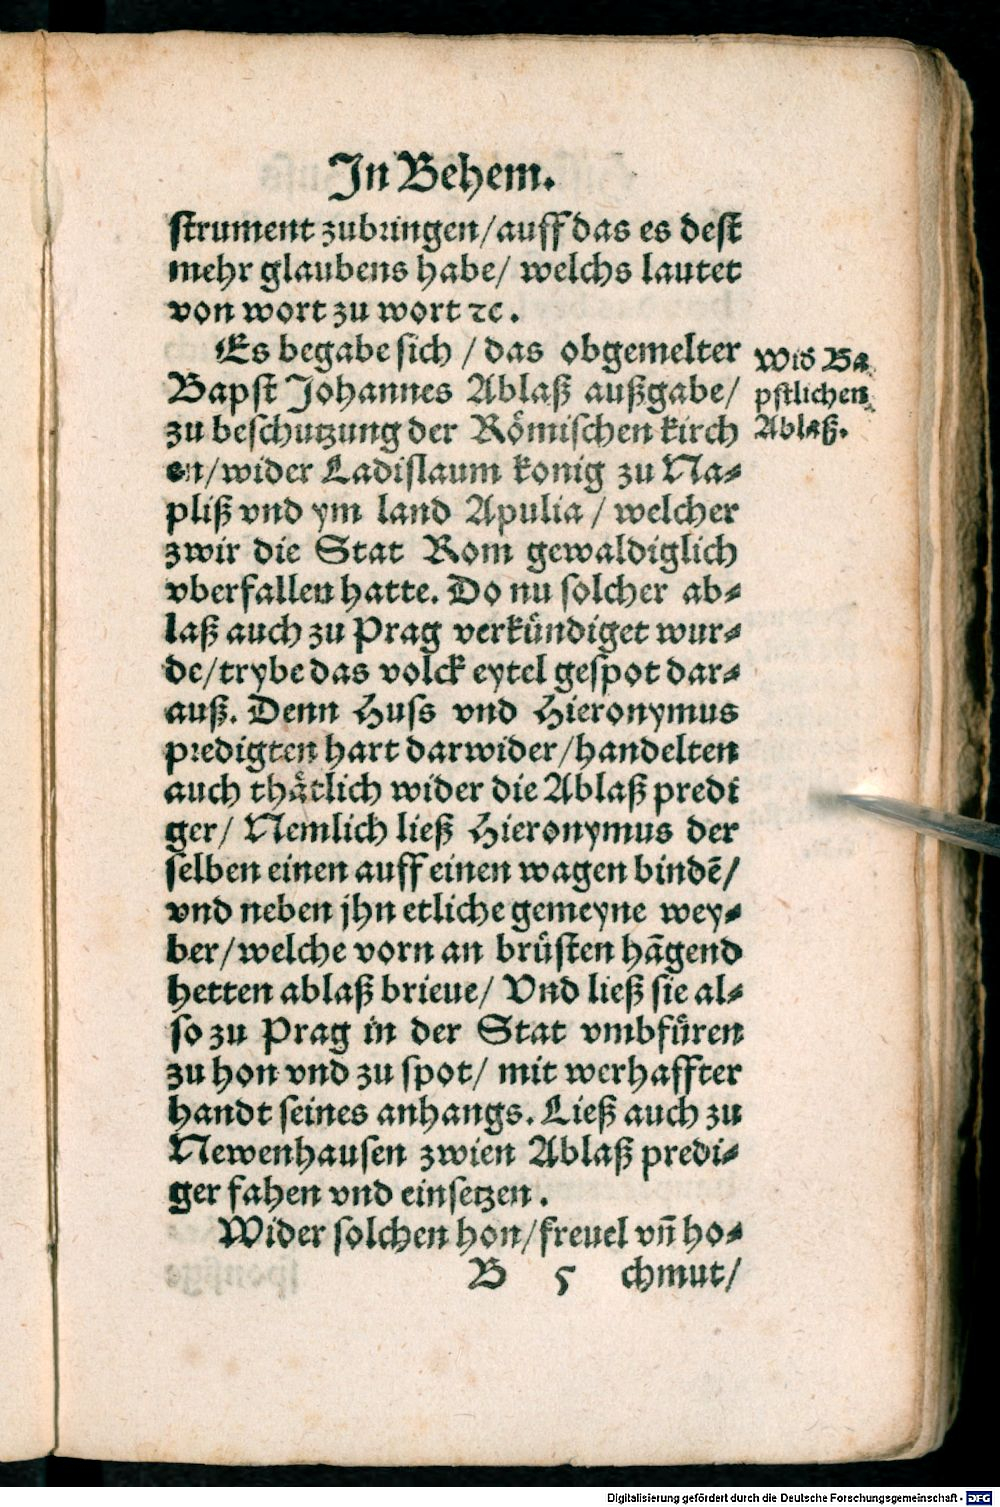 In Behem.
strument zubringen/auff das es dest
mehr glaubens habe/ welchs lautet
von wort zu wort ꝛc.
Es begabe sich / das obgemelter
Bapst Johannes Ablaß außgabe/
zu beschutzung der Römischen kirch
en/wider Ladislaum konig zu Na⸗
pliß vnd ym land Apulia / welcher
zwir die Stat Rom gewaldiglich
vberfallen hatte. Do nu solcher ab⸗
laß auch zu Prag verkündiget wur⸗
de/trybe das volck eytel gespot dar⸗
auß. Denn Huss vnd Hieronymus
predigten hart darwider/handelten
auch thätlich wider die Ablaß predi
ger/ Nemlich ließ Hieronymus der
selben einen auff einen wagen bindē/
vnd neben jhn etliche gemeyne wey⸗
ber/welche vorn an brüsten hāgend
hetten ablaß brieue/ Vnd ließ sie al⸗
so zu Prag in der Stat vmbfüren
zu hon vnd zu spot/ mit werhaffter
handt seines anhangs. Ließ auch zu
Newenhausen zwien Ablaß predi⸗
ger fahen vnd einsetzen.
Wider solchen hon/freuel vn̄ ho⸗
B 5 chmut/
Wid Ba
pstlichen
Ablaß.
Digitalisierung gefördert durch die Deutsche Forschungsgemeinschaft - DFG